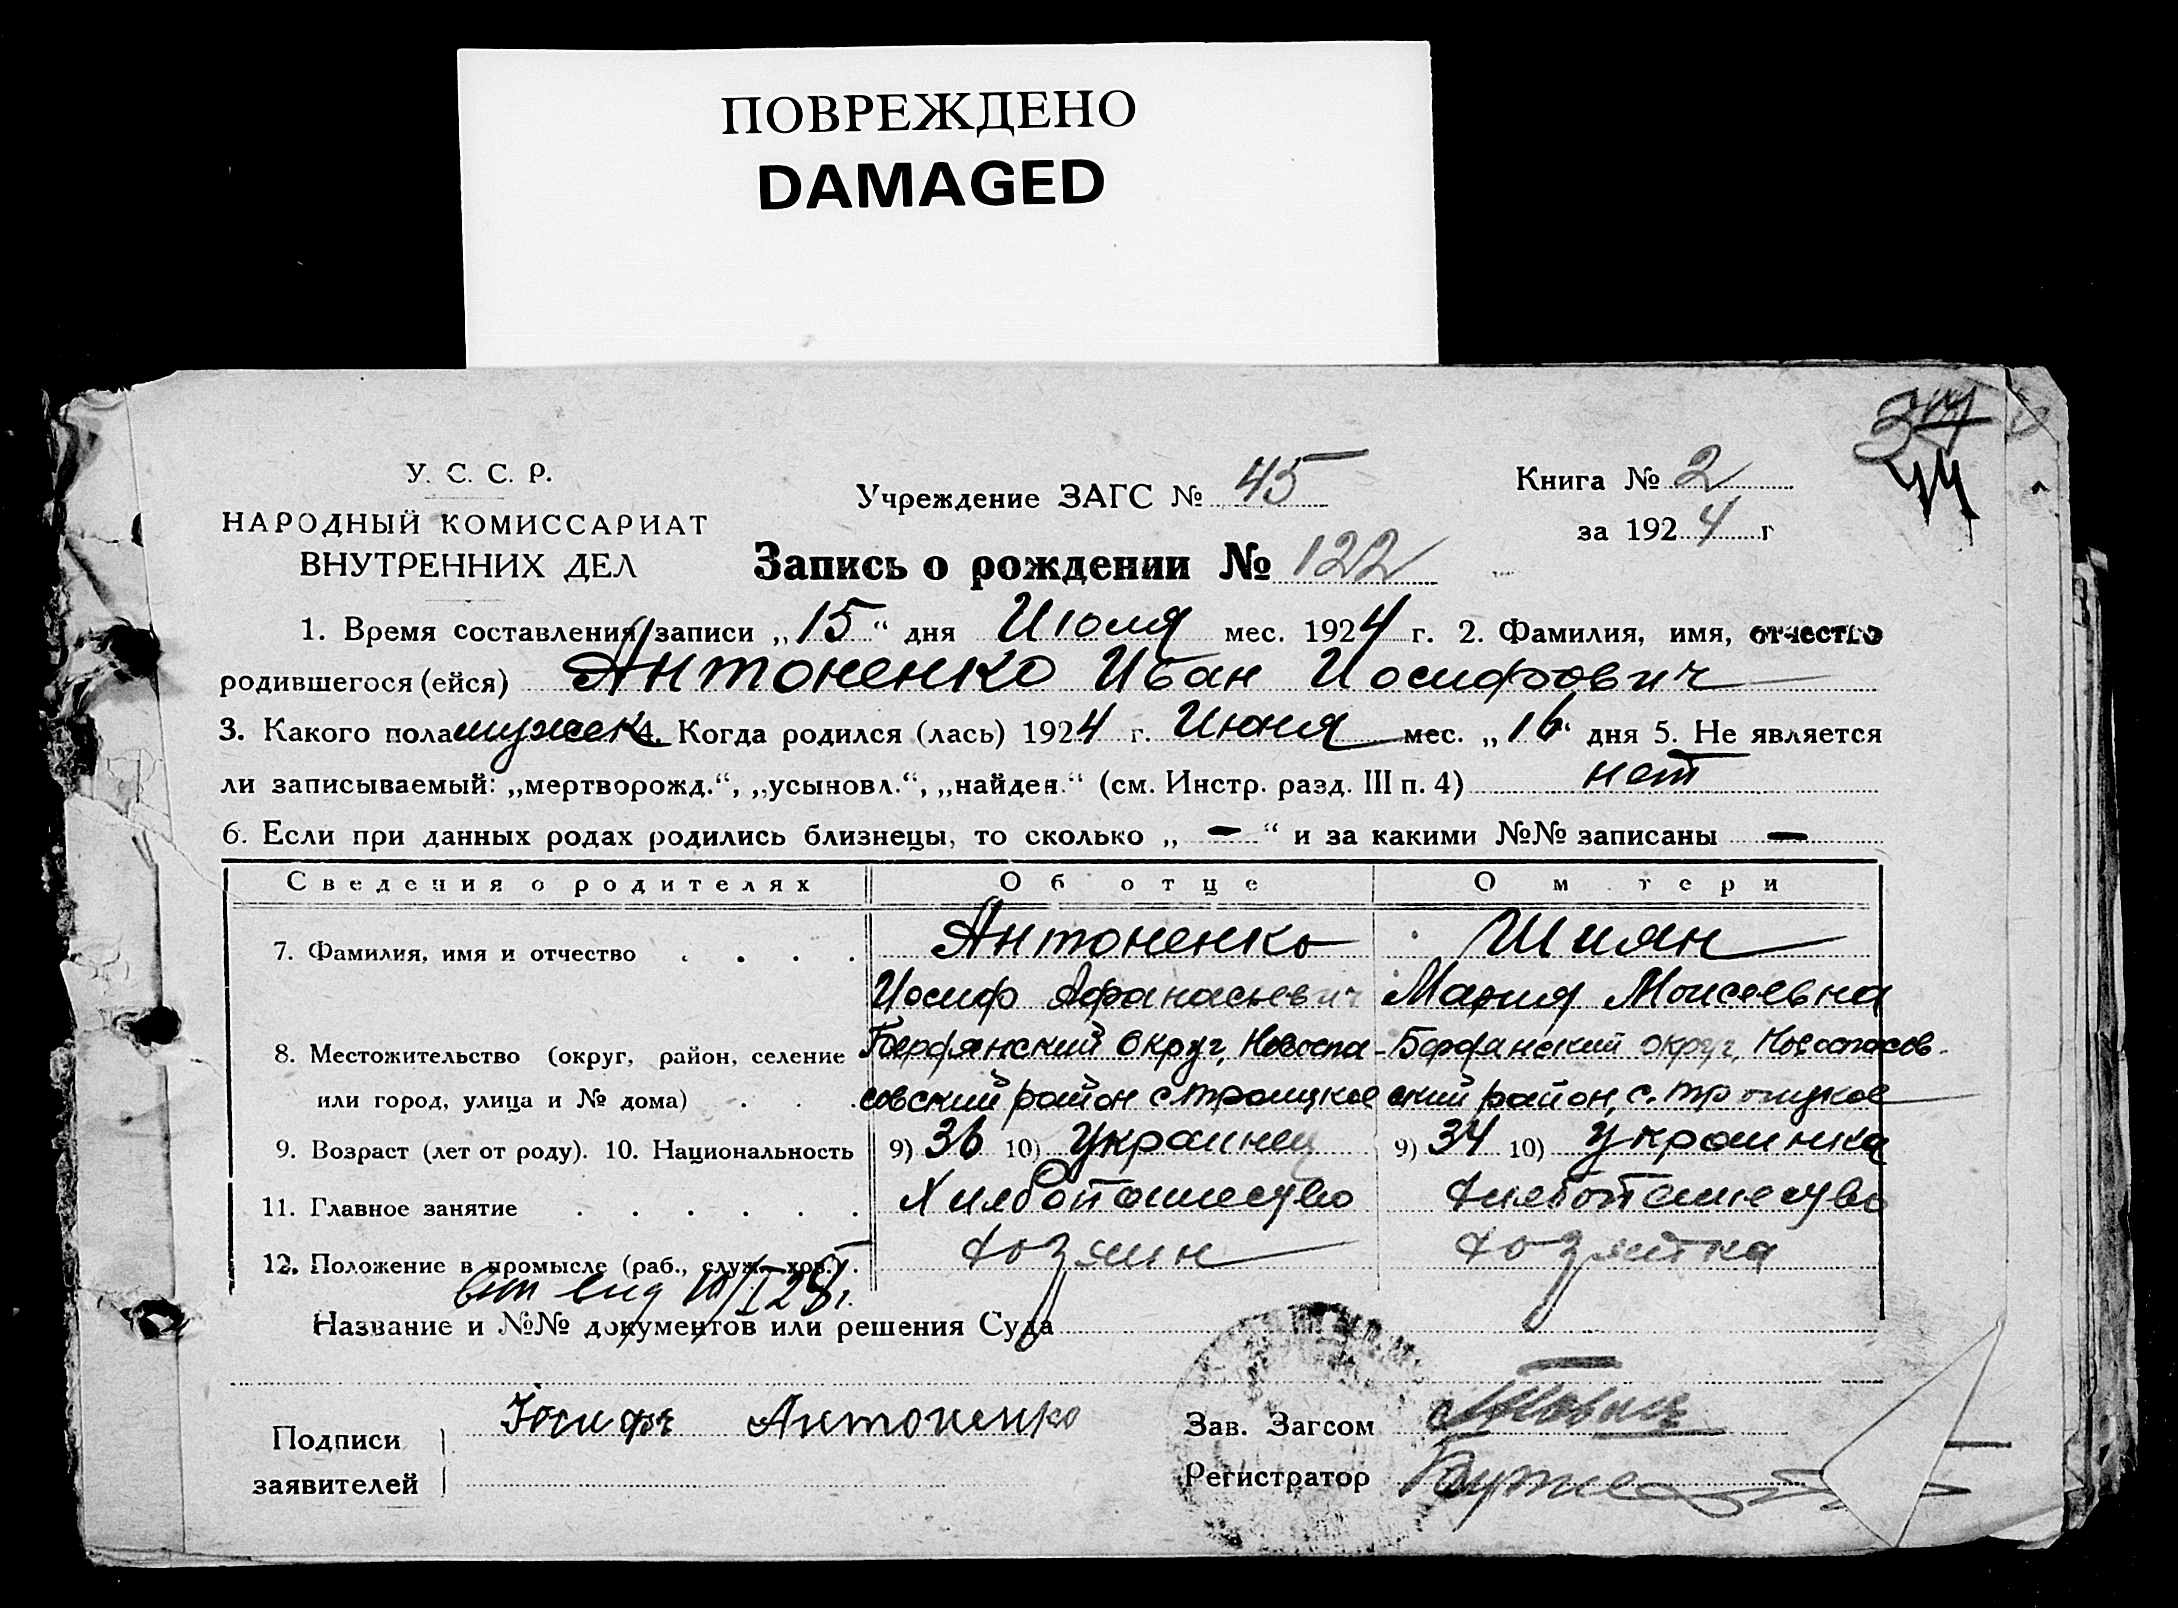 ПОВРЕЖДЕНО
DAMAGED
У. С. С. Р.
НАРОДНЫЙ КОМИССАРИАТ
ВНУТРЕННИХ ДЕЛ
Учреждение ЗАГС № 45
Книга № 2
за 1924 г
Запись о рождении № 122
1. Время составления записи „15“ дня Июля мес. 1924 г. 2. Фамилия, имя, отчество
родившегося (ейся) Антоненко Иван Иосифович
3. Какого пола мужск 4. Когда родился (лась) 1924 г. Июня мес. „16“ дня 5. Не является
ли записываемый: „мертворожд.“, „усыновл.“, „найден.“ (см. Инстр. разд. III п. 4) нет
6. Если при данных родах родились близнецы, то сколько „ — “ и за какими №№ записаны —
Сведения о родителях Об отце О м тери
7. Фамилия, имя и отчество . . . . Антоненко Шиян
Иосиф Афанасьевич Мария Моисеевна
8. Местожительство (округ, район, селение Бердянский округ, Новоспа- Бердянский округ, Новоспасов-
или город, улица и № дома) . . . совский район с. Троицкое ский район, с. Троицкое
9. Возраст (лет от роду). 10. Национальность 9) 36 10) Украинец 9) 34 10) Украинка
11. Главное занятие . . . . . . Хлибопашесуво Хлебопашесуво
12. Положение в промысле (раб., служ. хоз.) . Хозяин Хозяйка
Название и №№ документов или решения Суда
Подписи
заявителей
Иосифъ Антоненко
Зав. Загсом
Регистратор